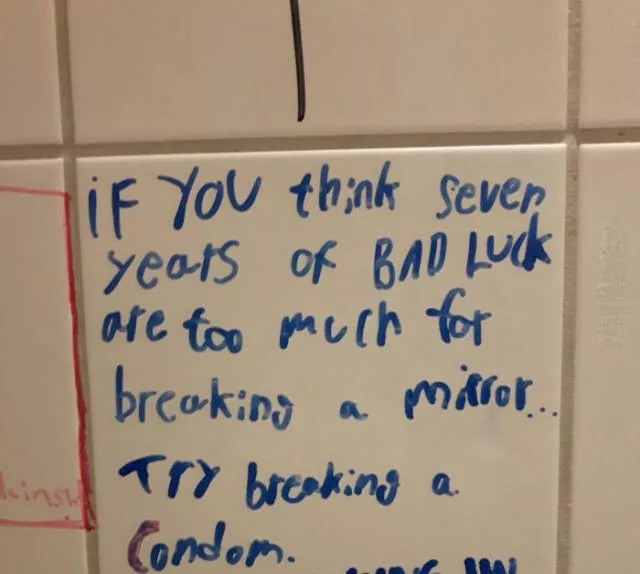 iF YOU think seven
years of BAD LUCK
are too much for
breaking a mirror...
TRY breaking a
Condom.